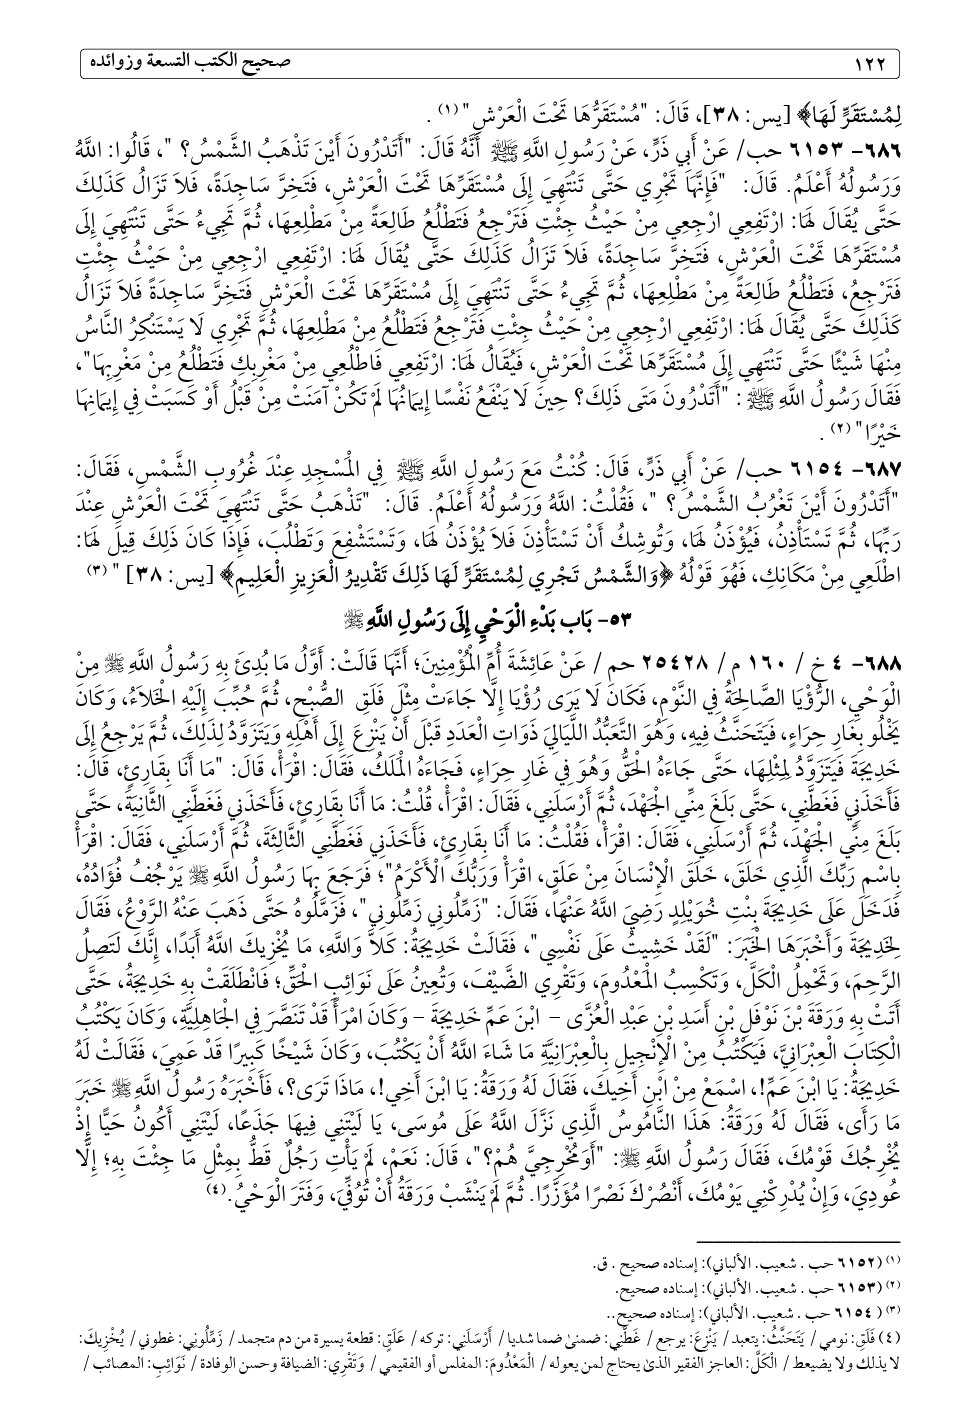 ١٢٢ صحيح الكتب التسعة وزوائده
لِمُسْتَقَرٍّ لَهَا﴾ [يس: ٣٨]، قَالَ: "مُسْتَقَرُّهَا تَحْتَ الْعَرْشِ" (١) .
٦٨٦- ٦١٥٣ حب/ عَنْ أَبِي ذَرٍّ، عَنْ رَسُولِ اللَّهِ ﷺ أَنَّهُ قَالَ: "أَتَدْرُونَ أَيْنَ تَذْهَبُ الشَّمْسُ؟ "، قَالُوا: اللَّهُ
وَرَسُولُهُ أَعْلَمُ. قَالَ: "فَإِنَّهَا تَجْرِي حَتَّى تَنْتَهِيَ إِلَى مُسْتَقَرِّهَا تَحْتَ الْعَرْشِ، فَتَخِرَّ سَاجِدَةً، فَلاَ تَزَالُ كَذَلِكَ
حَتَّى يُقَالَ لَهَا: ارْتَفِعِي ارْجِعِي مِنْ حَيْثُ جِئْتِ فَتَرْجِعُ فَتَطْلُعُ طَالِعَةً مِنْ مَطْلِعِهَا، ثُمَّ تَجِيءُ حَتَّى تَنْتَهِيَ إِلَى
مُسْتَقَرِّهَا تَحْتَ الْعَرْشِ، فَتَخِرَّ سَاجِدَةً، فَلاَ تَزَالُ كَذَلِكَ حَتَّى يُقَالَ لَهَا: ارْتَفِعِي ارْجِعِي مِنْ حَيْثُ جِئْتِ
فَتَرْجِعُ، فَتَطْلُعُ طَالِعَةً مِنْ مَطْلِعِهَا، ثُمَّ تَجِيءُ حَتَّى تَنْتَهِيَ إِلَى مُسْتَقَرِّهَا تَحْتَ الْعَرْشِ فَتَخِرَّ سَاجِدَةً فَلاَ تَزَالُ
كَذَلِكَ حَتَّى يُقَالَ لَهَا: ارْتَفِعِي ارْجِعِي مِنْ حَيْثُ جِئْتِ فَتَرْجِعُ فَتَطْلُعُ مِنْ مَطْلِعِهَا، ثُمَّ تَجْرِي لَا يَسْتَنْكِرُ النَّاسُ
مِنْهَا شَيْئًا حَتَّى تَنْتَهِي إِلَى مُسْتَقَرِّهَا تَحْتَ الْعَرْشِ، فَيُقَالُ لَهَا: ارْتَفِعِي فَاطْلُعِي مِنْ مَغْرِبِكِ فَتَطْلُعُ مِنْ مَغْرِبِهَا"،
فَقَالَ رَسُولُ اللَّهِ ﷺ : "أَتَدْرُونَ مَتَى ذَلِكَ؟ حِينَ لَا يَنْفَعُ نَفْسًا إِيمَانُهَا لَمْ تَكُنْ آمَنَتْ مِنْ قَبْلُ أَوْ كَسَبَتْ فِي إِيمَانِهَا
خَيْرًا" (٢) .
٦٨٧- ٦١٥٤ حب/ عَنْ أَبِي ذَرٍّ، قَالَ: كُنْتُ مَعَ رَسُولِ اللَّهِ ﷺ فِي الْمَسْجِدِ عِنْدَ غُرُوبِ الشَّمْسِ، فَقَالَ:
"أَتَدْرُونَ أَيْنَ تَغْرُبُ الشَّمْسُ؟ "، فَقُلْتُ: اللَّهُ وَرَسُولُهُ أَعْلَمُ. قَالَ: "تَذْهَبُ حَتَّى تَنْتَهِيَ تَحْتَ الْعَرْشِ عِنْدَ
رَبِّهَا، ثُمَّ تَسْتَأْذِنُ، فَيُؤْذَنُ لَهَا، وَتُوشِكُ أَنْ تَسْتَأْذِنَ فَلاَ يُؤْذَنُ لَهَا، وَتَسْتَشْفِعَ وَتَطْلُبَ، فَإِذَا كَانَ ذَلِكَ قِيلَ لَهَا:
اطْلَعِي مِنْ مَكَانِكِ، فَهُوَ قَوْلُهُ ﴿وَالشَّمْسُ تَجْرِي لِمُسْتَقَرٍّ لَهَا ذَلِكَ تَقْدِيرُ الْعَزِيزِ الْعَلِيمِ﴾ [يس: ٣٨] " (٣)
٥٣- بَاب بَدْءِ الْوَحْيِ إِلَى رَسُولِ اللَّهِ ﷺ
٦٨٨- ٤ خ/ ١٦٠ م/ ٢٥٤٢٨ حم/ عَنْ عَائِشَةَ أُمِّ الْمُؤْمِنِينَ؛ أَنَّهَا قَالَتْ: أَوَّلُ مَا بُدِئَ بِهِ رَسُولُ اللَّهِ ﷺ مِنْ
الْوَحْيِ، الرُّؤْيَا الصَّالِحَةُ فِي النَّوْمِ، فَكَانَ لَا يَرَى رُؤْيَا إِلَّا جَاءَتْ مِثْلَ فَلَقِ الصُّبْحِ، ثُمَّ حُبِّبَ إِلَيْهِ الْخَلاَءُ، وَكَانَ
يَخْلُو بِغَارِ حِرَاءٍ، فَيَتَحَنَّثُ فِيهِ، وَهُوَ التَّعَبُّدُ اللَّيَالِيَ ذَوَاتِ الْعَدَدِ قَبْلَ أَنْ يَنْزِعَ إِلَى أَهْلِهِ وَيَتَزَوَّدُ لِذَلِكَ، ثُمَّ يَرْجِعُ إِلَى
خَدِيجَةَ فَيَتَزَوَّدُ لِمِثْلِهَا، حَتَّى جَاءَهُ الْحَقُّ وَهُوَ فِي غَارِ حِرَاءٍ، فَجَاءَهُ الْمَلَكُ، فَقَالَ: اقْرَأْ، قَالَ: "مَا أَنَا بِقَارِئٍ، قَالَ:
فَأَخَذَنِي فَغَطَّنِي، حَتَّى بَلَغَ مِنِّي الْجَهْدَ، ثُمَّ أَرْسَلَنِي، فَقَالَ: اقْرَأْ، قُلْتُ: مَا أَنَا بِقَارِئٍ، فَأَخَذَنِي فَغَطَّنِي الثَّانِيَةَ، حَتَّى
بَلَغَ مِنِّي الْجَهْدَ، ثُمَّ أَرْسَلَنِي، فَقَالَ: اقْرَأْ، فَقُلْتُ: مَا أَنَا بِقَارِئٍ، فَأَخَذَنِي فَغَطَّنِي الثَّالِثَةَ، ثُمَّ أَرْسَلَنِي، فَقَالَ: اقْرَأْ
بِاسْمِ رَبِّكَ الَّذِي خَلَقَ، خَلَقَ الْإِنْسَانَ مِنْ عَلَقٍ، اقْرَأْ وَرَبُّكَ الْأَكْرَمُ"؛ فَرَجَعَ بِهَا رَسُولُ اللَّهِ ﷺ يَرْجُفُ فُؤَادُهُ،
فَدَخَلَ عَلَى خَدِيجَةَ بِنْتِ خُوَيْلِدٍ رَضِيَ اللَّهُ عَنْهَا، فَقَالَ: "زَمِّلُونِي زَمِّلُونِي"، فَزَمَّلُوهُ حَتَّى ذَهَبَ عَنْهُ الرَّوْعُ، فَقَالَ
لِخَدِيجَةَ وَأَخْبَرَهَا الْخَبَرَ: "لَقَدْ خَشِيتُ عَلَى نَفْسِي"، فَقَالَتْ خَدِيجَةُ: كَلاَّ وَاللَّهِ، مَا يُخْزِيكَ اللَّهُ أَبَدًا، إِنَّكَ لَتَصِلُ
الرَّحِمَ، وَتَحْمِلُ الْكَلَّ، وَتَكْسِبُ الْمَعْدُومَ، وَتَقْرِي الضَّيْفَ، وَتُعِينُ عَلَى نَوَائِبِ الْحَقِّ؛ فَانْطَلَقَتْ بِهِ خَدِيجَةُ، حَتَّى
أَتَتْ بِهِ وَرَقَةَ بْنَ نَوْفَلِ بْنِ أَسَدِ بْنِ عَبْدِ الْعُزَّى – ابْنَ عَمِّ خَدِيجَةَ – وَكَانَ امْرَأً قَدْ تَنَصَّرَ فِي الْجَاهِلِيَّةِ، وَكَانَ يَكْتُبُ
الْكِتَابَ الْعِبْرَانِيَّ، فَيَكْتُبُ مِنْ الْإِنْجِيلِ بِالْعِبْرَانِيَّةِ مَا شَاءَ اللَّهُ أَنْ يَكْتُبَ، وَكَانَ شَيْخًا كَبِيرًا قَدْ عَمِيَ، فَقَالَتْ لَهُ
خَدِيجَةُ: يَا ابْنَ عَمِّ!، اسْمَعْ مِنْ ابْنِ أَخِيكَ، فَقَالَ لَهُ وَرَقَةُ: يَا ابْنَ أَخِي!، مَاذَا تَرَى؟، فَأَخْبَرَهُ رَسُولُ اللَّهِ ﷺ خَبَرَ
مَا رَأَى، فَقَالَ لَهُ وَرَقَةُ: هَذَا النَّامُوسُ الَّذِي نَزَّلَ اللَّهُ عَلَى مُوسَى، يَا لَيْتَنِي فِيهَا جَذَعًا، لَيْتَنِي أَكُونُ حَيًّا إِذْ
يُخْرِجُكَ قَوْمُكَ، فَقَالَ رَسُولُ اللَّهِ ﷺ: "أَوَمُخْرِجِيَّ هُمْ؟"، قَالَ: نَعَمْ، لَمْ يَأْتِ رَجُلٌ قَطُّ بِمِثْلِ مَا جِئْتَ بِهِ؛ إِلَّا
عُودِيَ، وَإِنْ يُدْرِكْنِي يَوْمُكَ، أَنْصُرْكَ نَصْرًا مُؤَزَّرًا. ثُمَّ لَمْ يَنْشَبْ وَرَقَةُ أَنْ تُوُفِّيَ، وَفَتَرَ الْوَحْيُ.(٤)
(١) (٦١٥٢ حب . شعيب. الألباني): إسناده صحيح . ق.
(٢) (٦١٥٣ حب . شعيب. الألباني): إسناده صحيح.
(٣) ( ٦١٥٤ حب . شعيب. الألباني): إسناده صحيح..
(٤) فَلَقِ: نومي/ يَتَحَنَّثُ: يتعبد/ يَنْزِعَ: يرجع/ غَطَّنِي: ضمنى ضما شديا/ أَرْسَلَنِي: تركه/ عَلَقٍ: قطعة يسيرة من دم متجمد/ زَمِّلُونِي: غطوني/ يُخْزِيكَ:
لا يذلك ولا يضيعط/ الْكَلَّ: العاجز الفقير الذى يحتاج لمن يعوله/ الْمَعْدُومَ: المفلس أو الفقيمي/ وَتَقْرِي: الضيافة وحسن الوفادة/ نَوَائِبِ: المصائب/